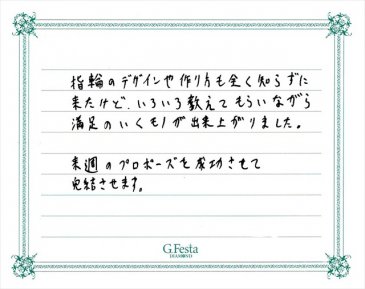 指輪のデザインや作り方も全く知らずに
来たけど、いろいろ教えてもらいながら
満足のいくモノが出来上がりました。
来週のプロポーズを成功させて
完結させます。
G.Festa
DIAMOND